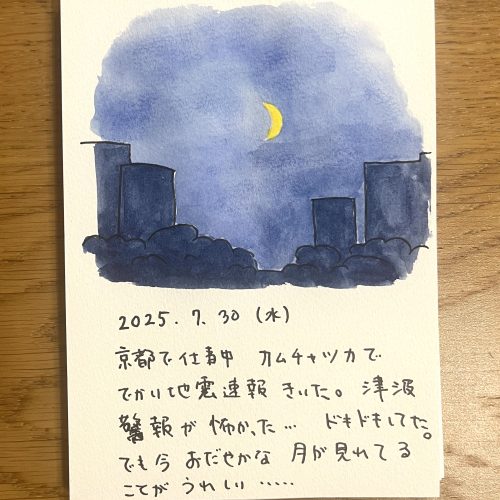 2025.7.30 (水)
京都で仕事中 カムチャツカで
でかい地震速報 きいた。津波
警報が怖かった… ドキドキしてた。
でも今 おだやかな 月が見れてる
ことが うれしい ……